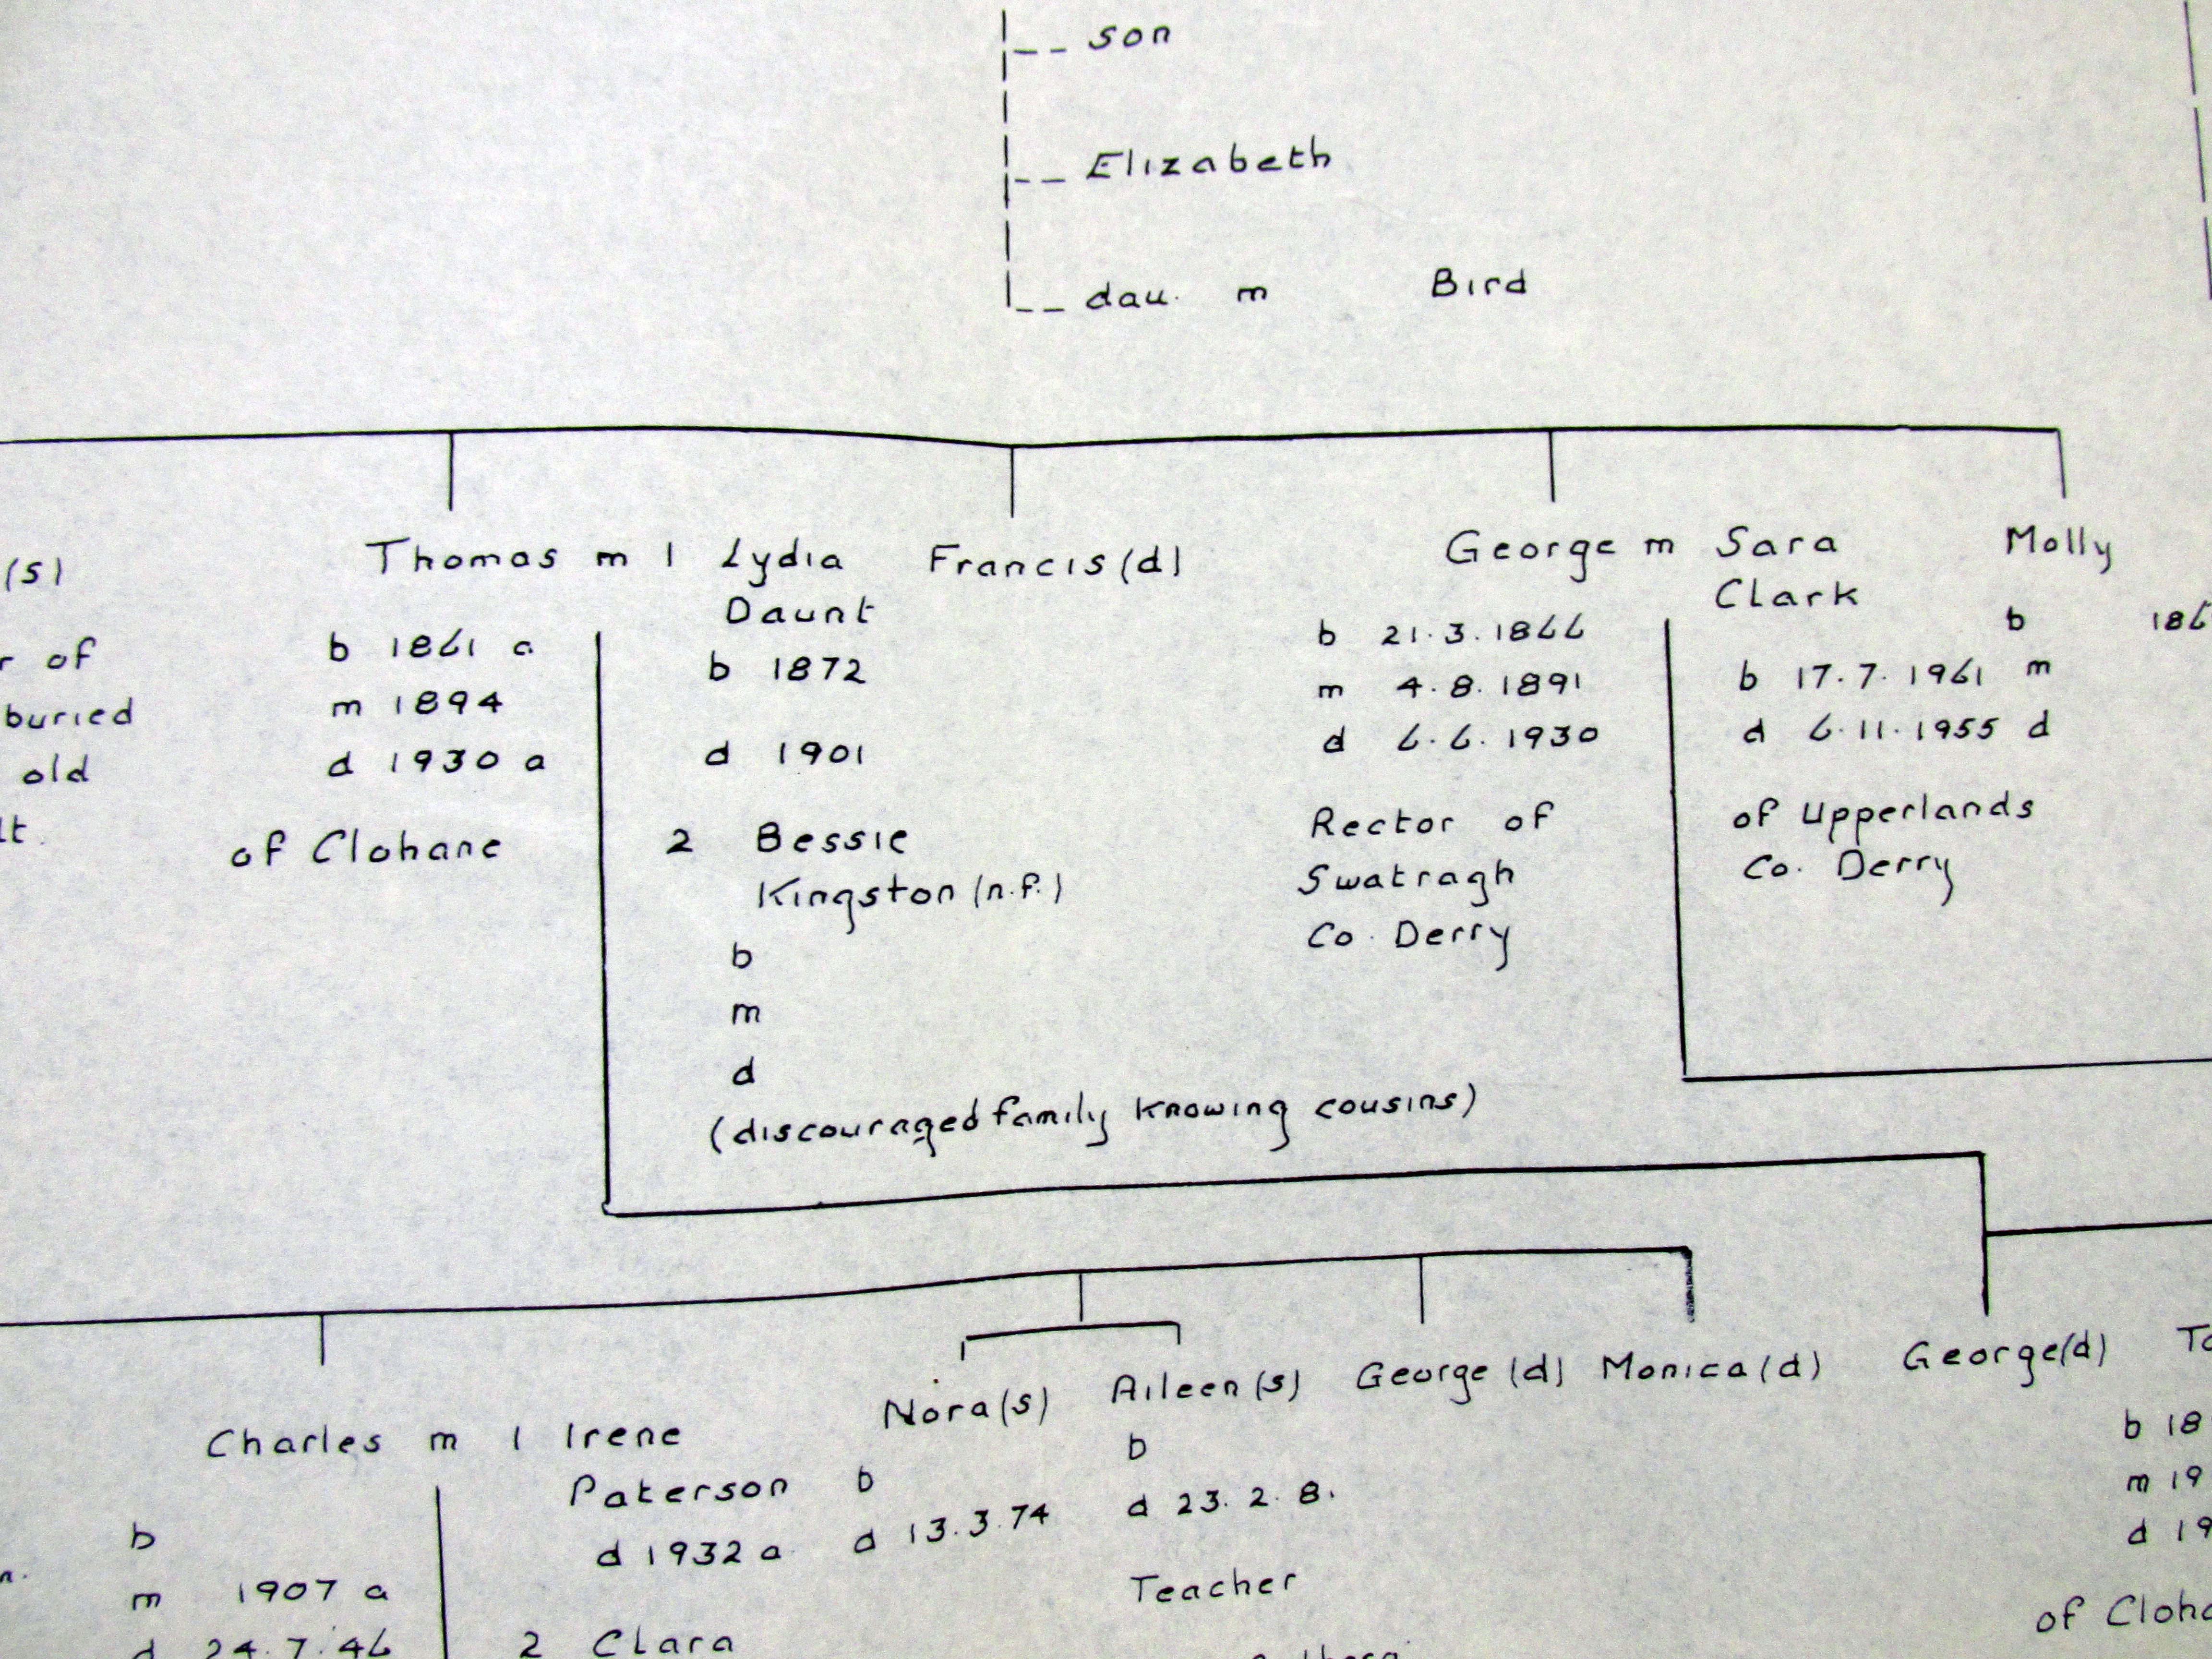 son
Elizabeth
dau. m Bird
(s)
of
buried
old
Thomas m 1 Lydia
Daunt
b 1861 a
m 1894
d 1930 a
of Clohane
b 1872
d 1901
2 Bessie
Kingston (n.f.)
b
m
d
(discouraged family knowing cousins)
Francis (d)
George m Sara
Clark
b 21.3.1866
m 4.8.1891
d 6.6.1930
Rector of
Swatragh
Co. Derry
b 17.7.1961
d 6.11.1955
of Upperlands
Co. Derry
Molly
b 186
m
d
Charles m 1 Irene
Paterson
d 1932 a
b
m 1907 a
d 24.7.46
2 Clara
Nora (s)
b
d 13.3.74
Aileen (s)
b
d 23.2.8.
Teacher
George (d)
Monica (d)
George (d)
b 18
m 19
d 19
of Cloha